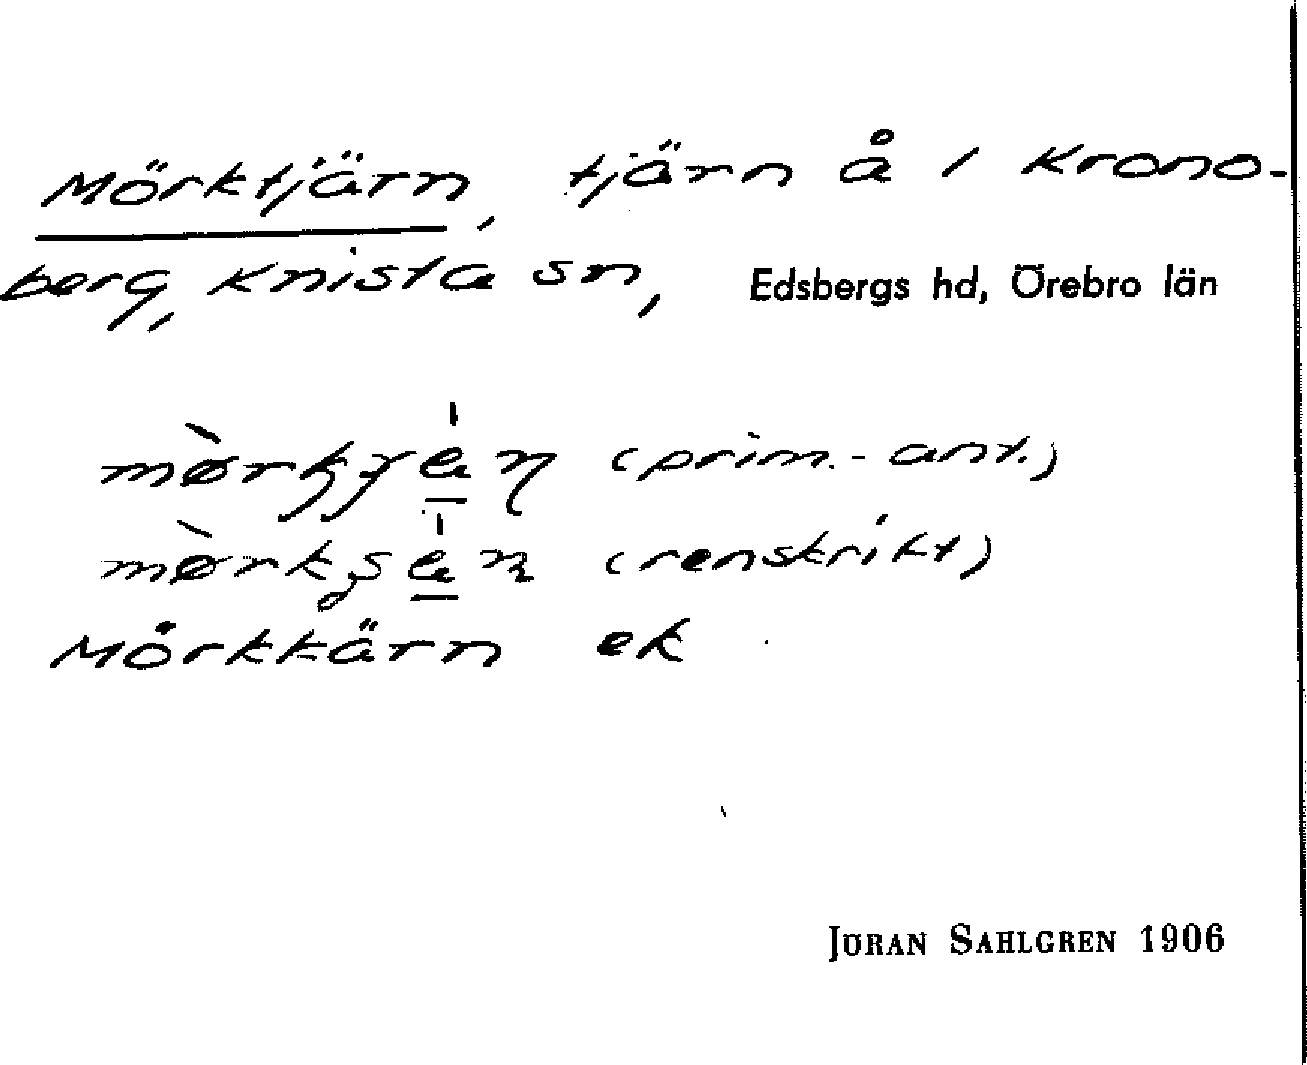 Mörktjärn, tjärn å 1 Krono-
berg, Knista sn, Edsbergs hd, Örebro län
(prim.-ant.)
(renskrikt)
Mörkkärn ek
JÖRAN SAHLGREN 1906